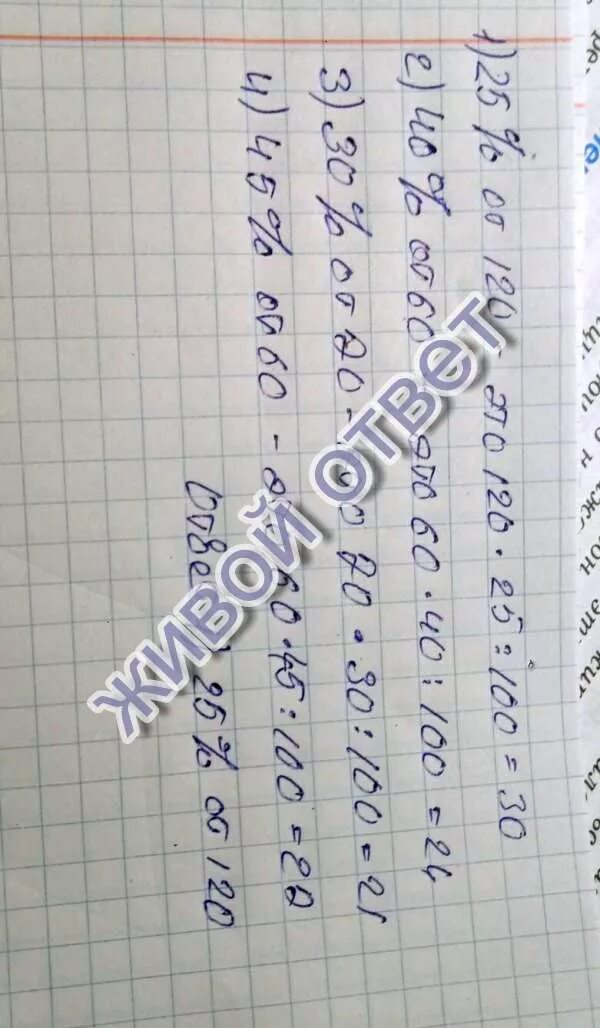 1) 25% от 120, это 120 · 25 : 100 = 30
2) 40% от 60 это 60 · 40 : 100 = 24
3) 30% от 70 - 70 · 30 : 100 = 21
4) 45% от 60 - 60 · 45 : 100 = 27
25% от 120
ЖИВОЙ ОТВЕТ